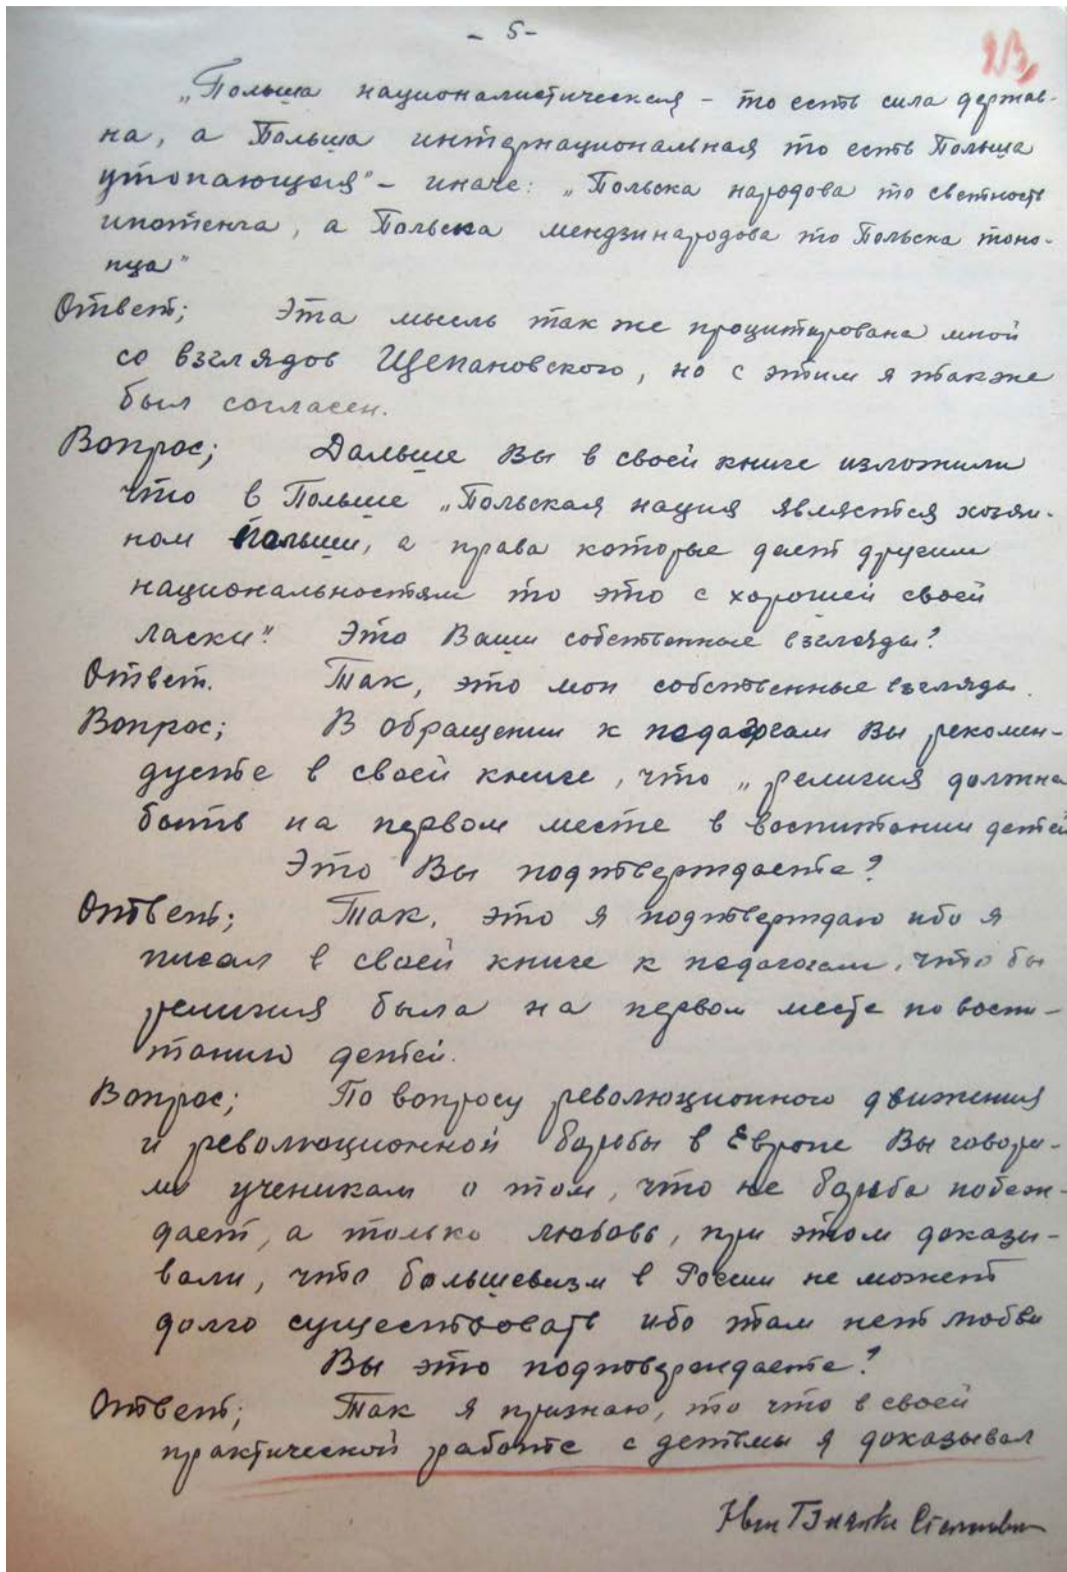 - 5 -
23,
„Польша националистическая - то есть сила держав-
на, а Польша интернациональная то есть Польша
утопающая" - иначе: „Польска народова то светность
ипотенга, а Польска мендзинародова то Польска тоно-
пца"
Ответ; Эта мысль так же процитирована мной
со взглядов Щепановского, но с этим я также
был согласен.
Вопрос; Дальше Вы в своей книге изложили
что в Польше „Польская нация является хозяи-
ном Польши, а права которые дает другим
национальностям то это с хорошей своей
ласки". Это Ваши собственные взгляды?
Ответ. Так, это мои собственные взгляды.
Вопрос; В обращении к педагогам Вы рекомен-
дуете в своей книге, что „религия должна
быть на первом месте в воспитании детей
Это Вы подтверждаете?
Ответ; Так, это я подтверждаю ибо я
писал в своей книге к педагогам, что бы
религия была на первом месте по воспи-
танию детей.
Вопрос; По вопросу революционного движения
и революционной борьбы в Европе Вы говори-
ли ученикам о том, что не борьба побеж-
дает, а только любовь, при этом доказы-
вали, что большевизм в России не может
долго существовать ибо там нет любви
Вы это подтверждаете?
Ответ; Так я признаю, то что в своей
практической работе с детьмы я доказывал